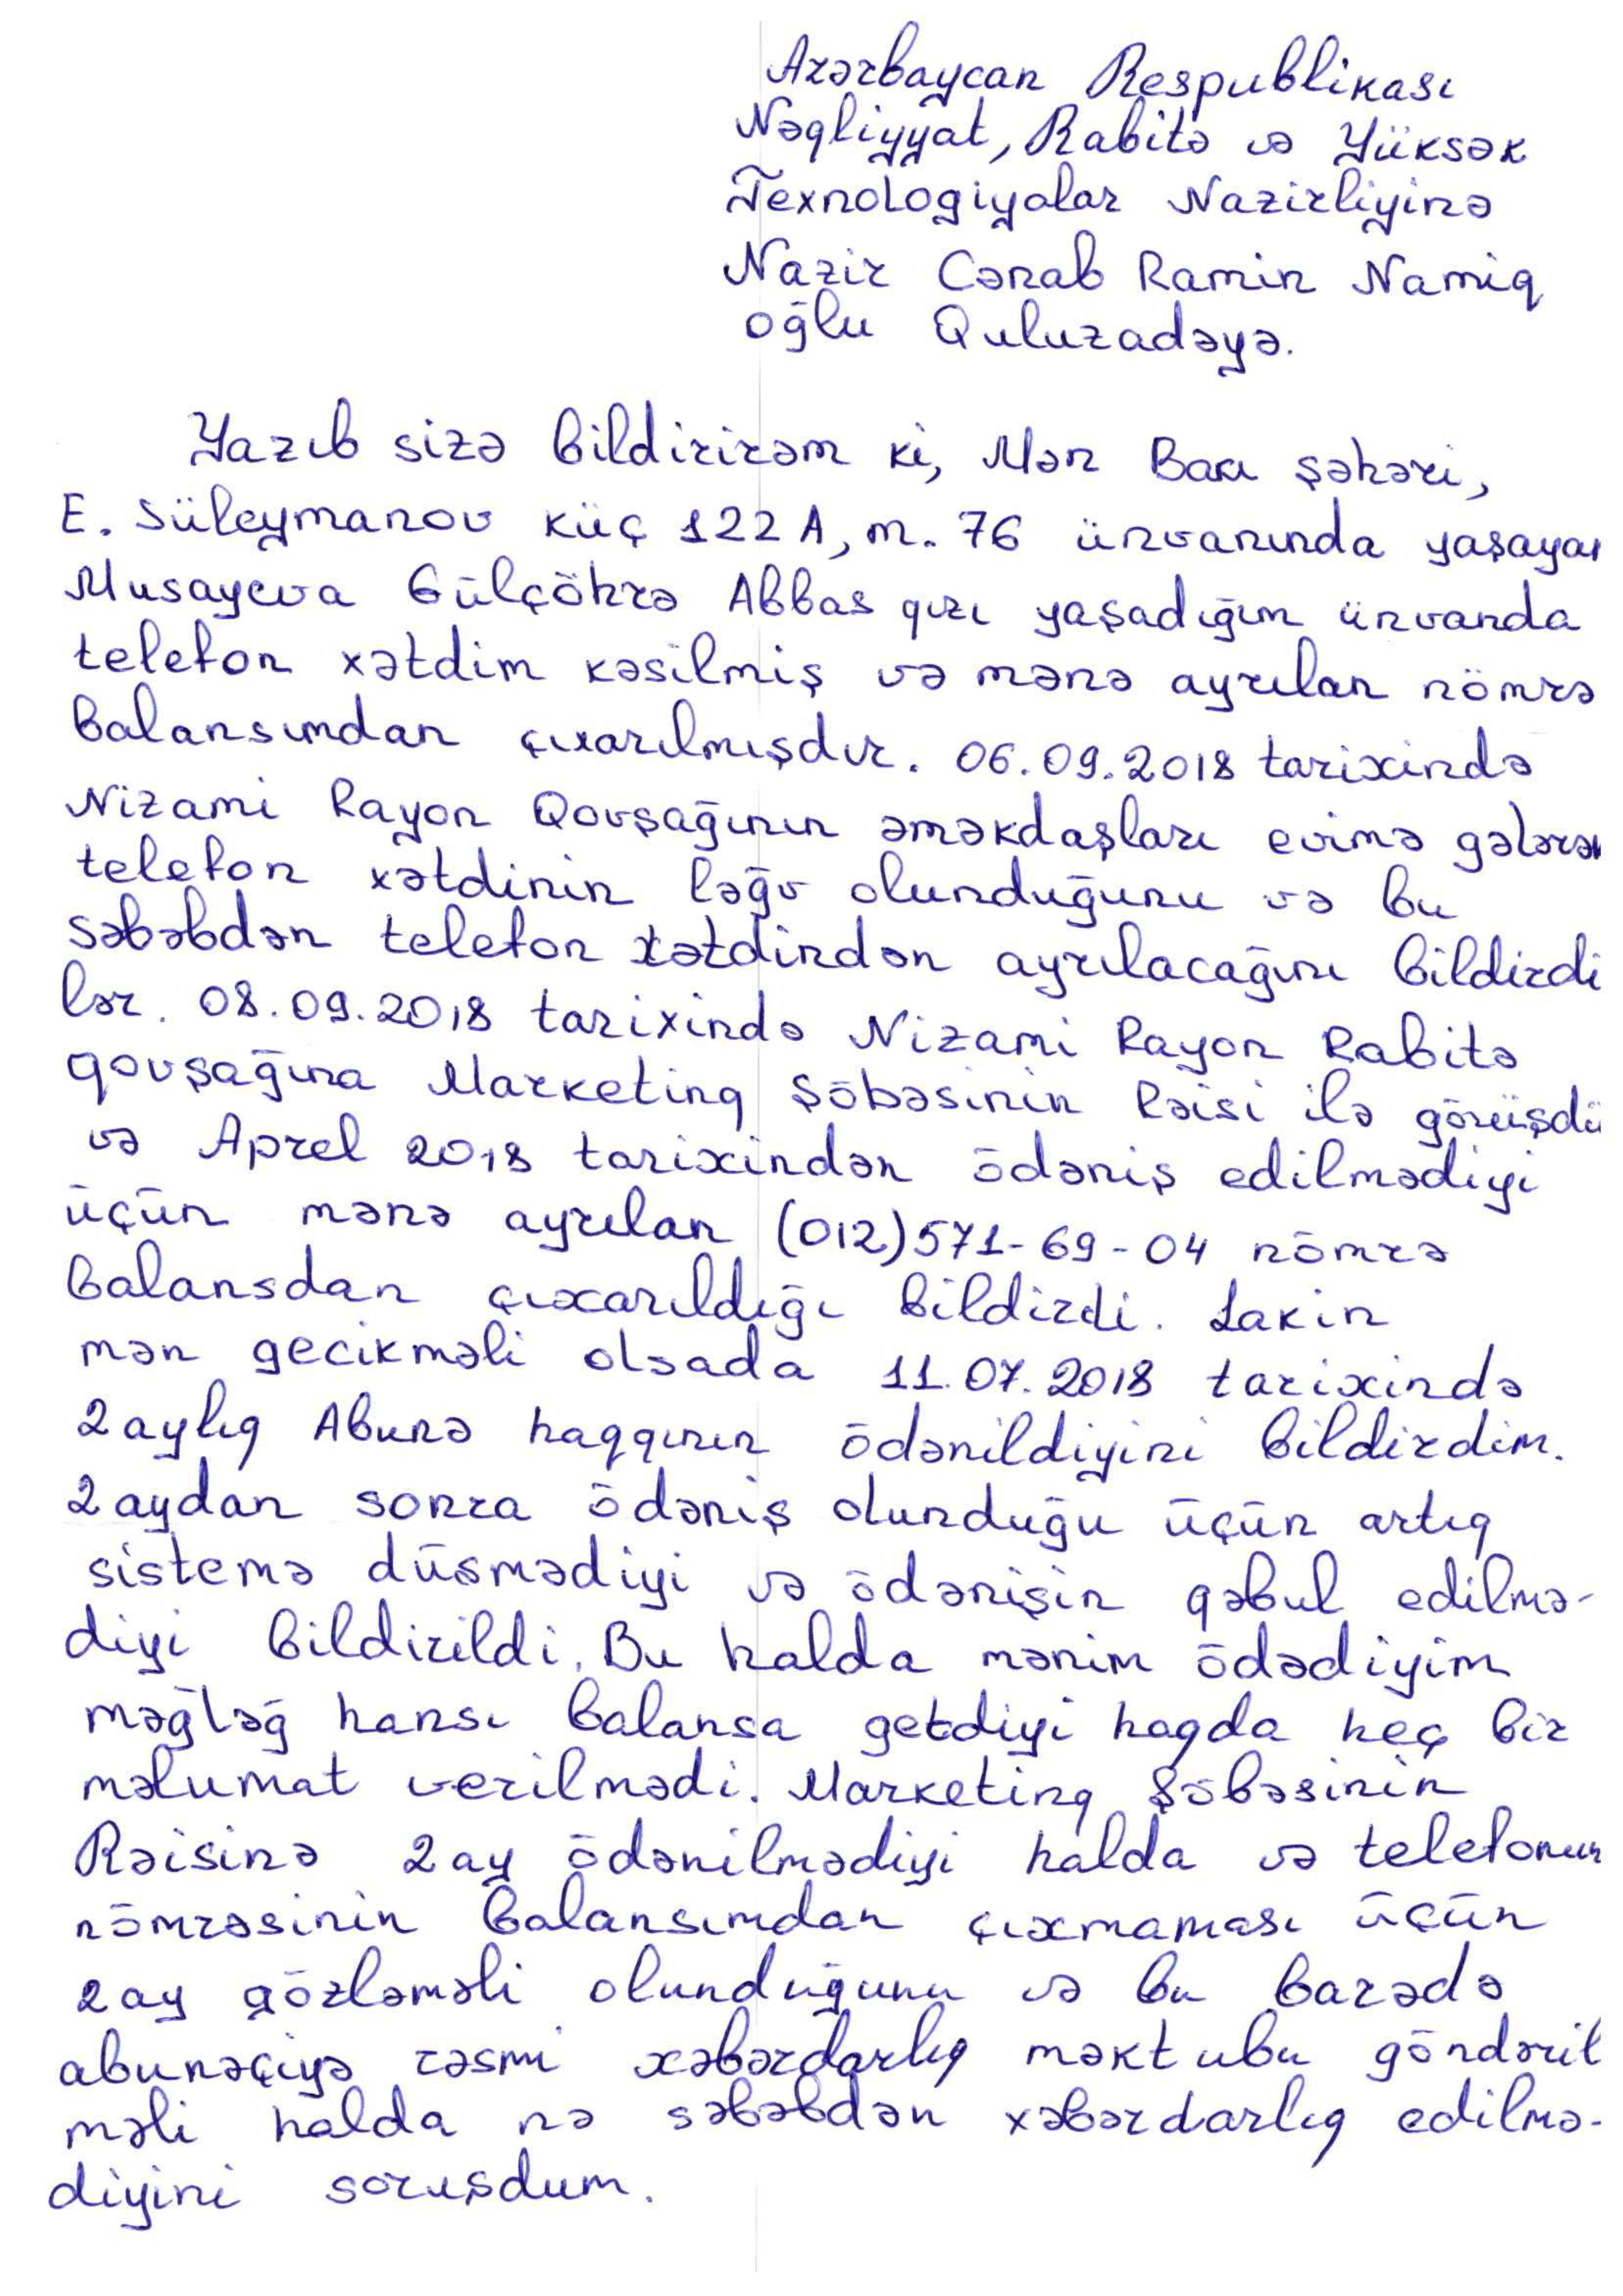 Azərbaycan Respublikası
Nəqliyyat, Rabitə və Yüksək
Texnologiyalar Nazirliyinə
Nazir Cənab Ramin Namiq
oğlu Quluzadəyə.
Yazıb sizə bildirirəm ki, Mən Bakı şəhəri,
E. Süleymanov küç 122 A, m. 76 ünvanında yaşayan
Musayeva Gülçöhrə Abbas qızı yaşadığım ünvanda
telefon xətdim kəsilmiş və mənə ayrılan nömrə
balansımdan çıxarılmışdır. 06.09.2018 tarixində
Nizami Rayon Qovşağının əməkdaşları evimə gələrək
telefon xətdinin ləğv olunduğunu və bu
səbəbdən telefon xətdindən ayrılacağını bildirdi
lər. 08.09.2018 tarixində Nizami Rayon Rabitə
qovşağına Marketinq Şöbəsinin Rəisi ilə görüşdü
və Aprel 2018 tarixindən ödəniş edilmədiyi
üçün mənə ayrılan (012)571-69-04 nömrə
balansdan çıxarıldığı bildirdi. Lakin
mən gecikməli olsada 11.07.2018 tarixində
2 aylıq Abunə haqqının ödənildiyini bildirdim.
2 aydan sonra ödəniş olunduğu üçün artıq
sistemə düşmədiyi və ödənişin qəbul edilmə-
diyi bildirildi. Bu halda mənim ödədiyim
məğləğ hansı balansa getdiyi haqda heç bir
məlumat verilmədi. Marketinq Şöbəsinin
Rəisinə 2 ay ödənilmədiyi halda və telefonun
nömrəsinin balansımdan çıxmaması üçün
2 ay gözləməli olunduğunu və bu barədə
abunəçiyə rəsmi xəbərdarlıq məktubu göndəril
məli halda nə səbəbdən xəbərdarlıq edilmə-
diyini soruşdum.